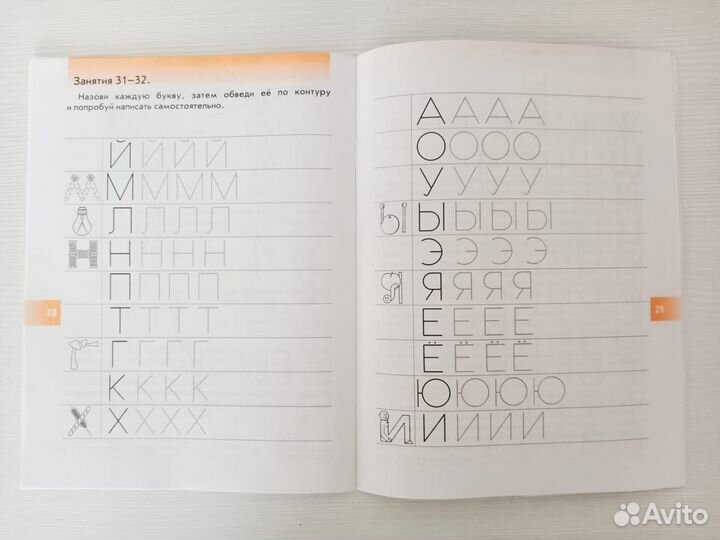 Занятия 31–32.
Назови каждую букву, затем обведи её по контуру
и попробуй написать самостоятельно.
Й Й Й Й
М М М М
Л Л Л Л
Н Н Н Н
П П П П
Т Т Т Т
Г Г Г Г
К К К К
Х Х Х Х
28
А А А А
О О О О
У У У У
Ы Ы Ы Ы Ы
Э Э Э Э
Я Я Я Я Я
Е Е Е Е
Ё Ё Ё Ё
Ю Ю Ю Ю
И И И И
29
Avito